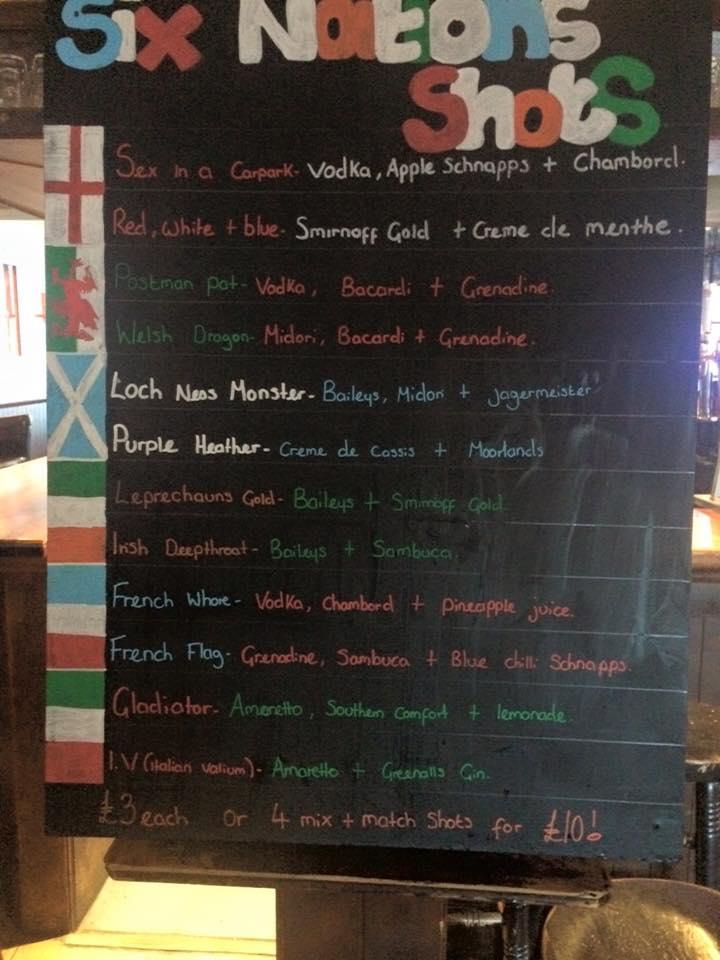 Six Nations
Shots
Sex in a Carpark- Vodka, Apple Schnapps + Chambord.
Red, White + blue- Smirnoff Gold + Creme de menthe.
Postman pat- Vodka, Bacardi + Grenadine.
Welsh Dragon- Midori, Bacardi + Grenadine.
Loch Ness Monster- Baileys, Midori + Jagermeister
Purple Heather- Creme de Cassis + Moorlands
Leprechauns Gold- Baileys + Smirnoff Gold.
Irish Deepthroat- Baileys + Sambuca.
French Whore- Vodka, Chambord + Pineapple juice.
French Flag- Grenadine, Sambuca + Blue chilli Schnapps.
Gladiator- Amaretto, Southern Comfort + lemonade.
I.V (Italian Valium)- Amaretto + Greenalls Gin.
£3 each or 4 mix + match Shots for £10!